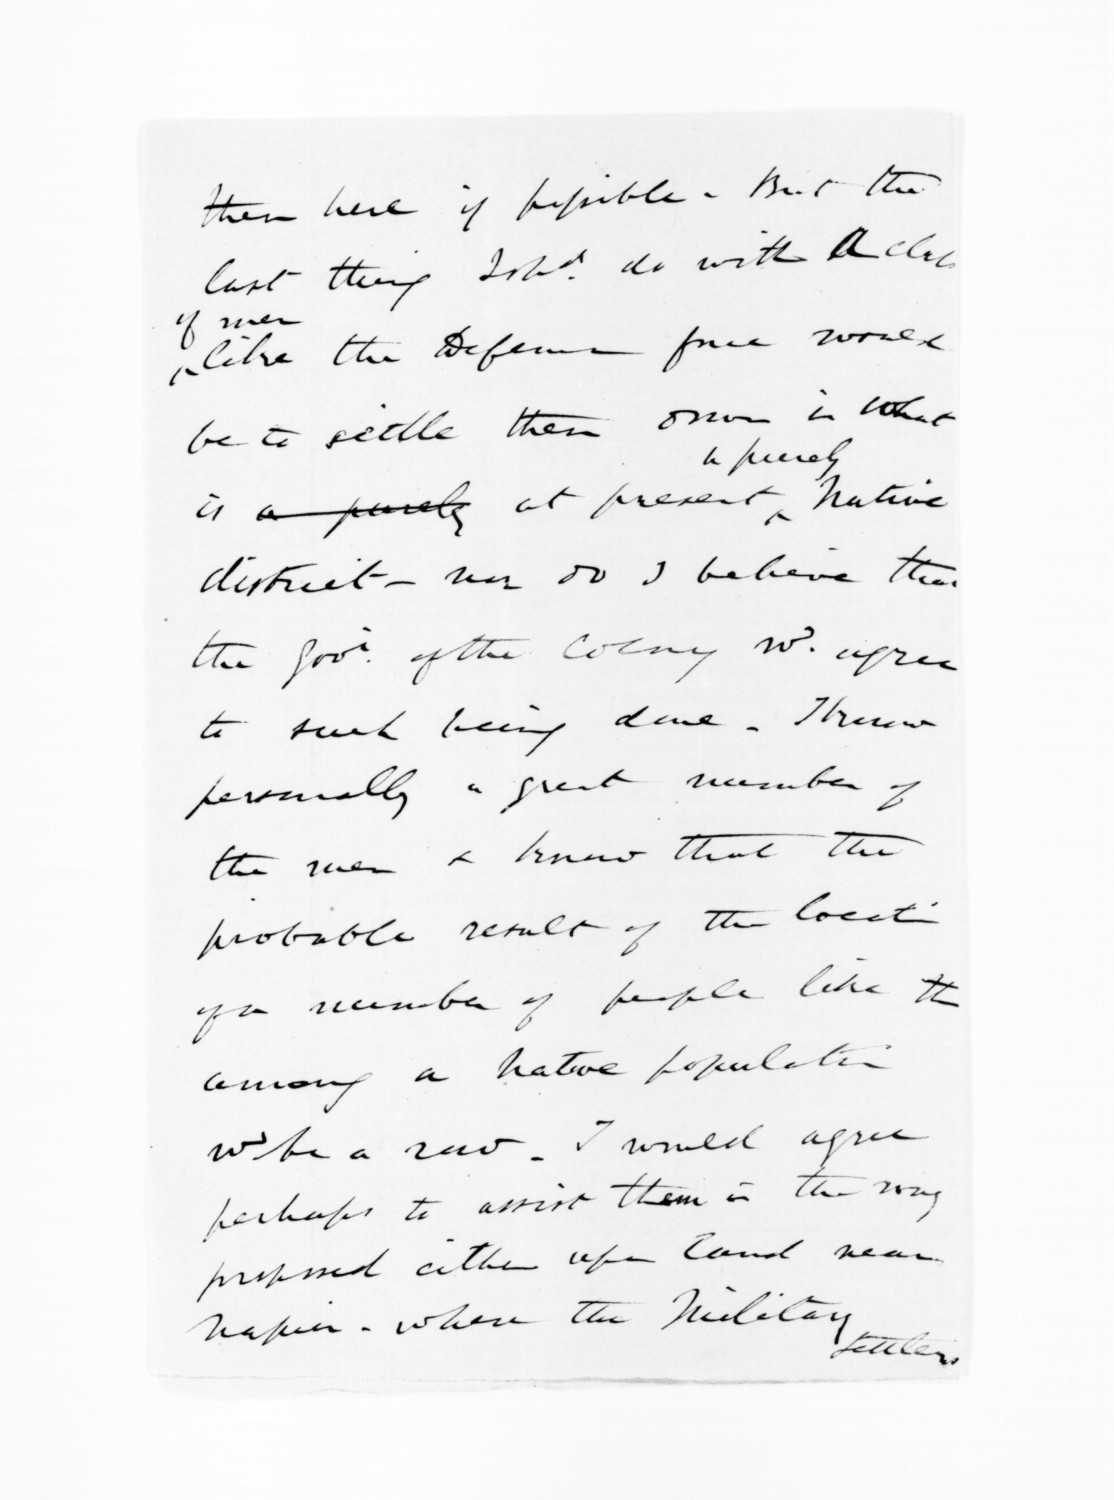 them here if possible - But the
last thing I shd. do with A class
of men
like the Defence force would
be to settle them down in what
is a purely at present a purely Native
district - nor do I believe that
the Govt. of the Colony wd. agree
to such being done - I know
personally a great number of
the men & know that the
probable result of the locati
of a number of people like th
among a Native populatin
wd be a row - I would agree
perhaps to assist them in the way
proposed either upon land near
Napier - where the Military
Settlers